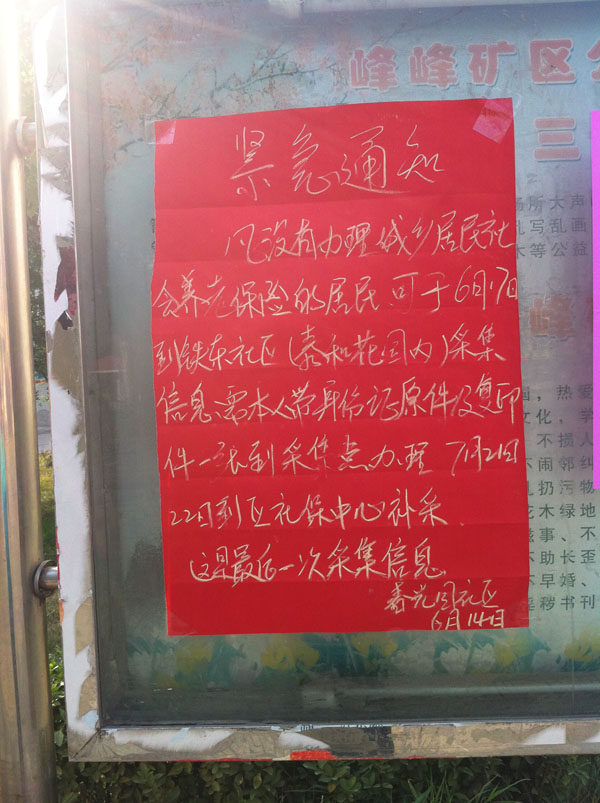 峰峰矿区
三
紧急通知
凡没有办理城乡居民社
会养老保险的居民可于6月17日
到铁东社区(泰和花园内)采集
信息需本人带身份证原件及复印
件一张到采集点办理 7月21日
22日到区社保中心补采
这是最后一次采集信息
春光园社区
6月14日
场所大声
乱写乱画
木等公益
峰
热爱
文化，学
不损人
不闹邻纠
乱扔污物
花木绿地
不
不助长歪
不早婚、
秽书刊